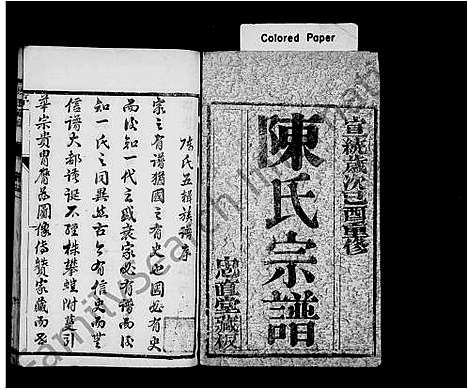 Colored Paper
宣統歲次己酉重修
陳氏宗譜
忠直堂藏板
陳氏五輯族譜序
家之有譜猶國之有史也國必有史
而後知一代之盛衰家必有譜
而後知一氏之同異然古今有信史而無
信譜大都誇誕不經株攀蔓附莫引
華宗貴胄厯茲圖像傳贊家藏而
FamilySearch International